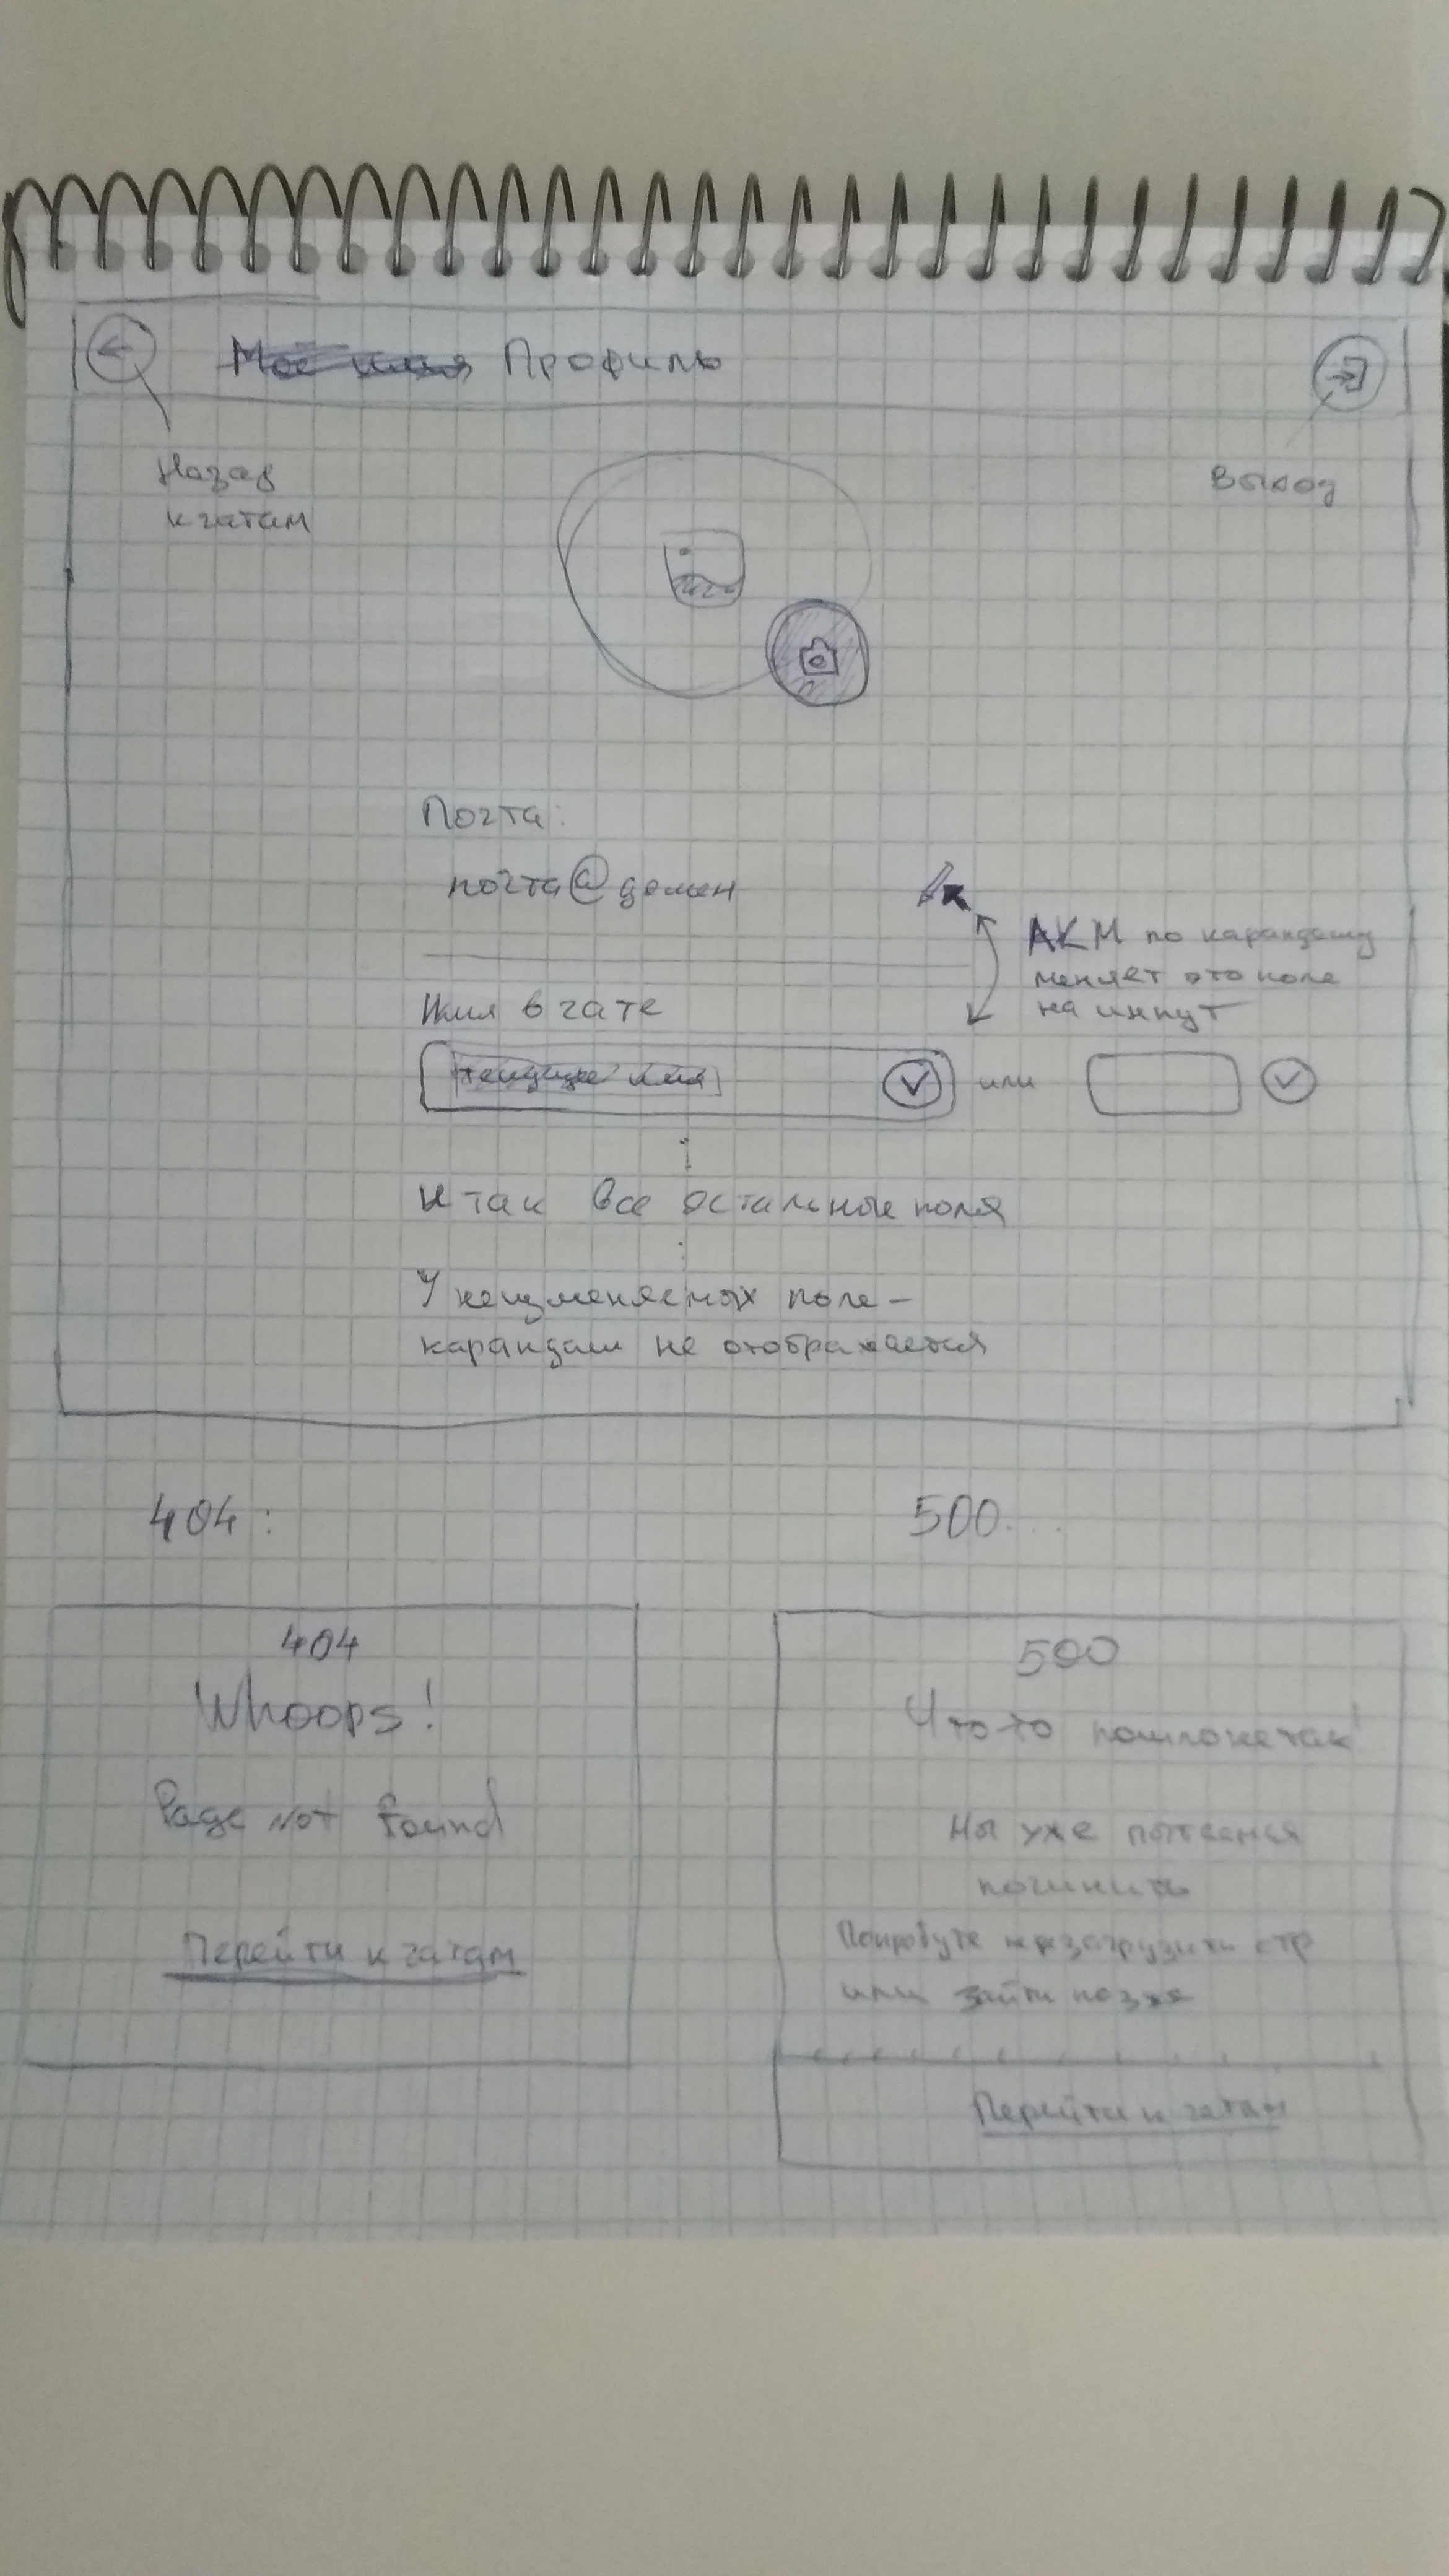 Моё имя Профиль
Назад
к чатам
Выход
Почта:
почта@домен
ЛКМ по карандашу
меняет это поле
на инпут
Имя в чате
текущее имя
или
и так все остальные поля
У неизменяемых поле-
карандаш не отображается
404:
500...
404
Whoops!
Page Not Found
Перейти к чатам
500
Что-то пошло не так!
Мы уже пытаемся
починить
Попробуте перезагрузить стр
или зайти позже
Перейти к чатам